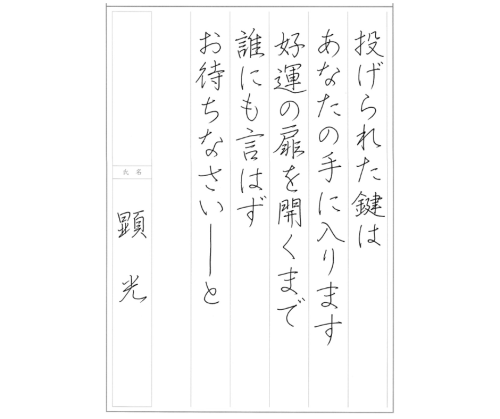 投げられた鍵は
あなたの手に入ります
好運の扉を開くまで
誰にも言はず
お待ちなさい――と
氏名
顕光